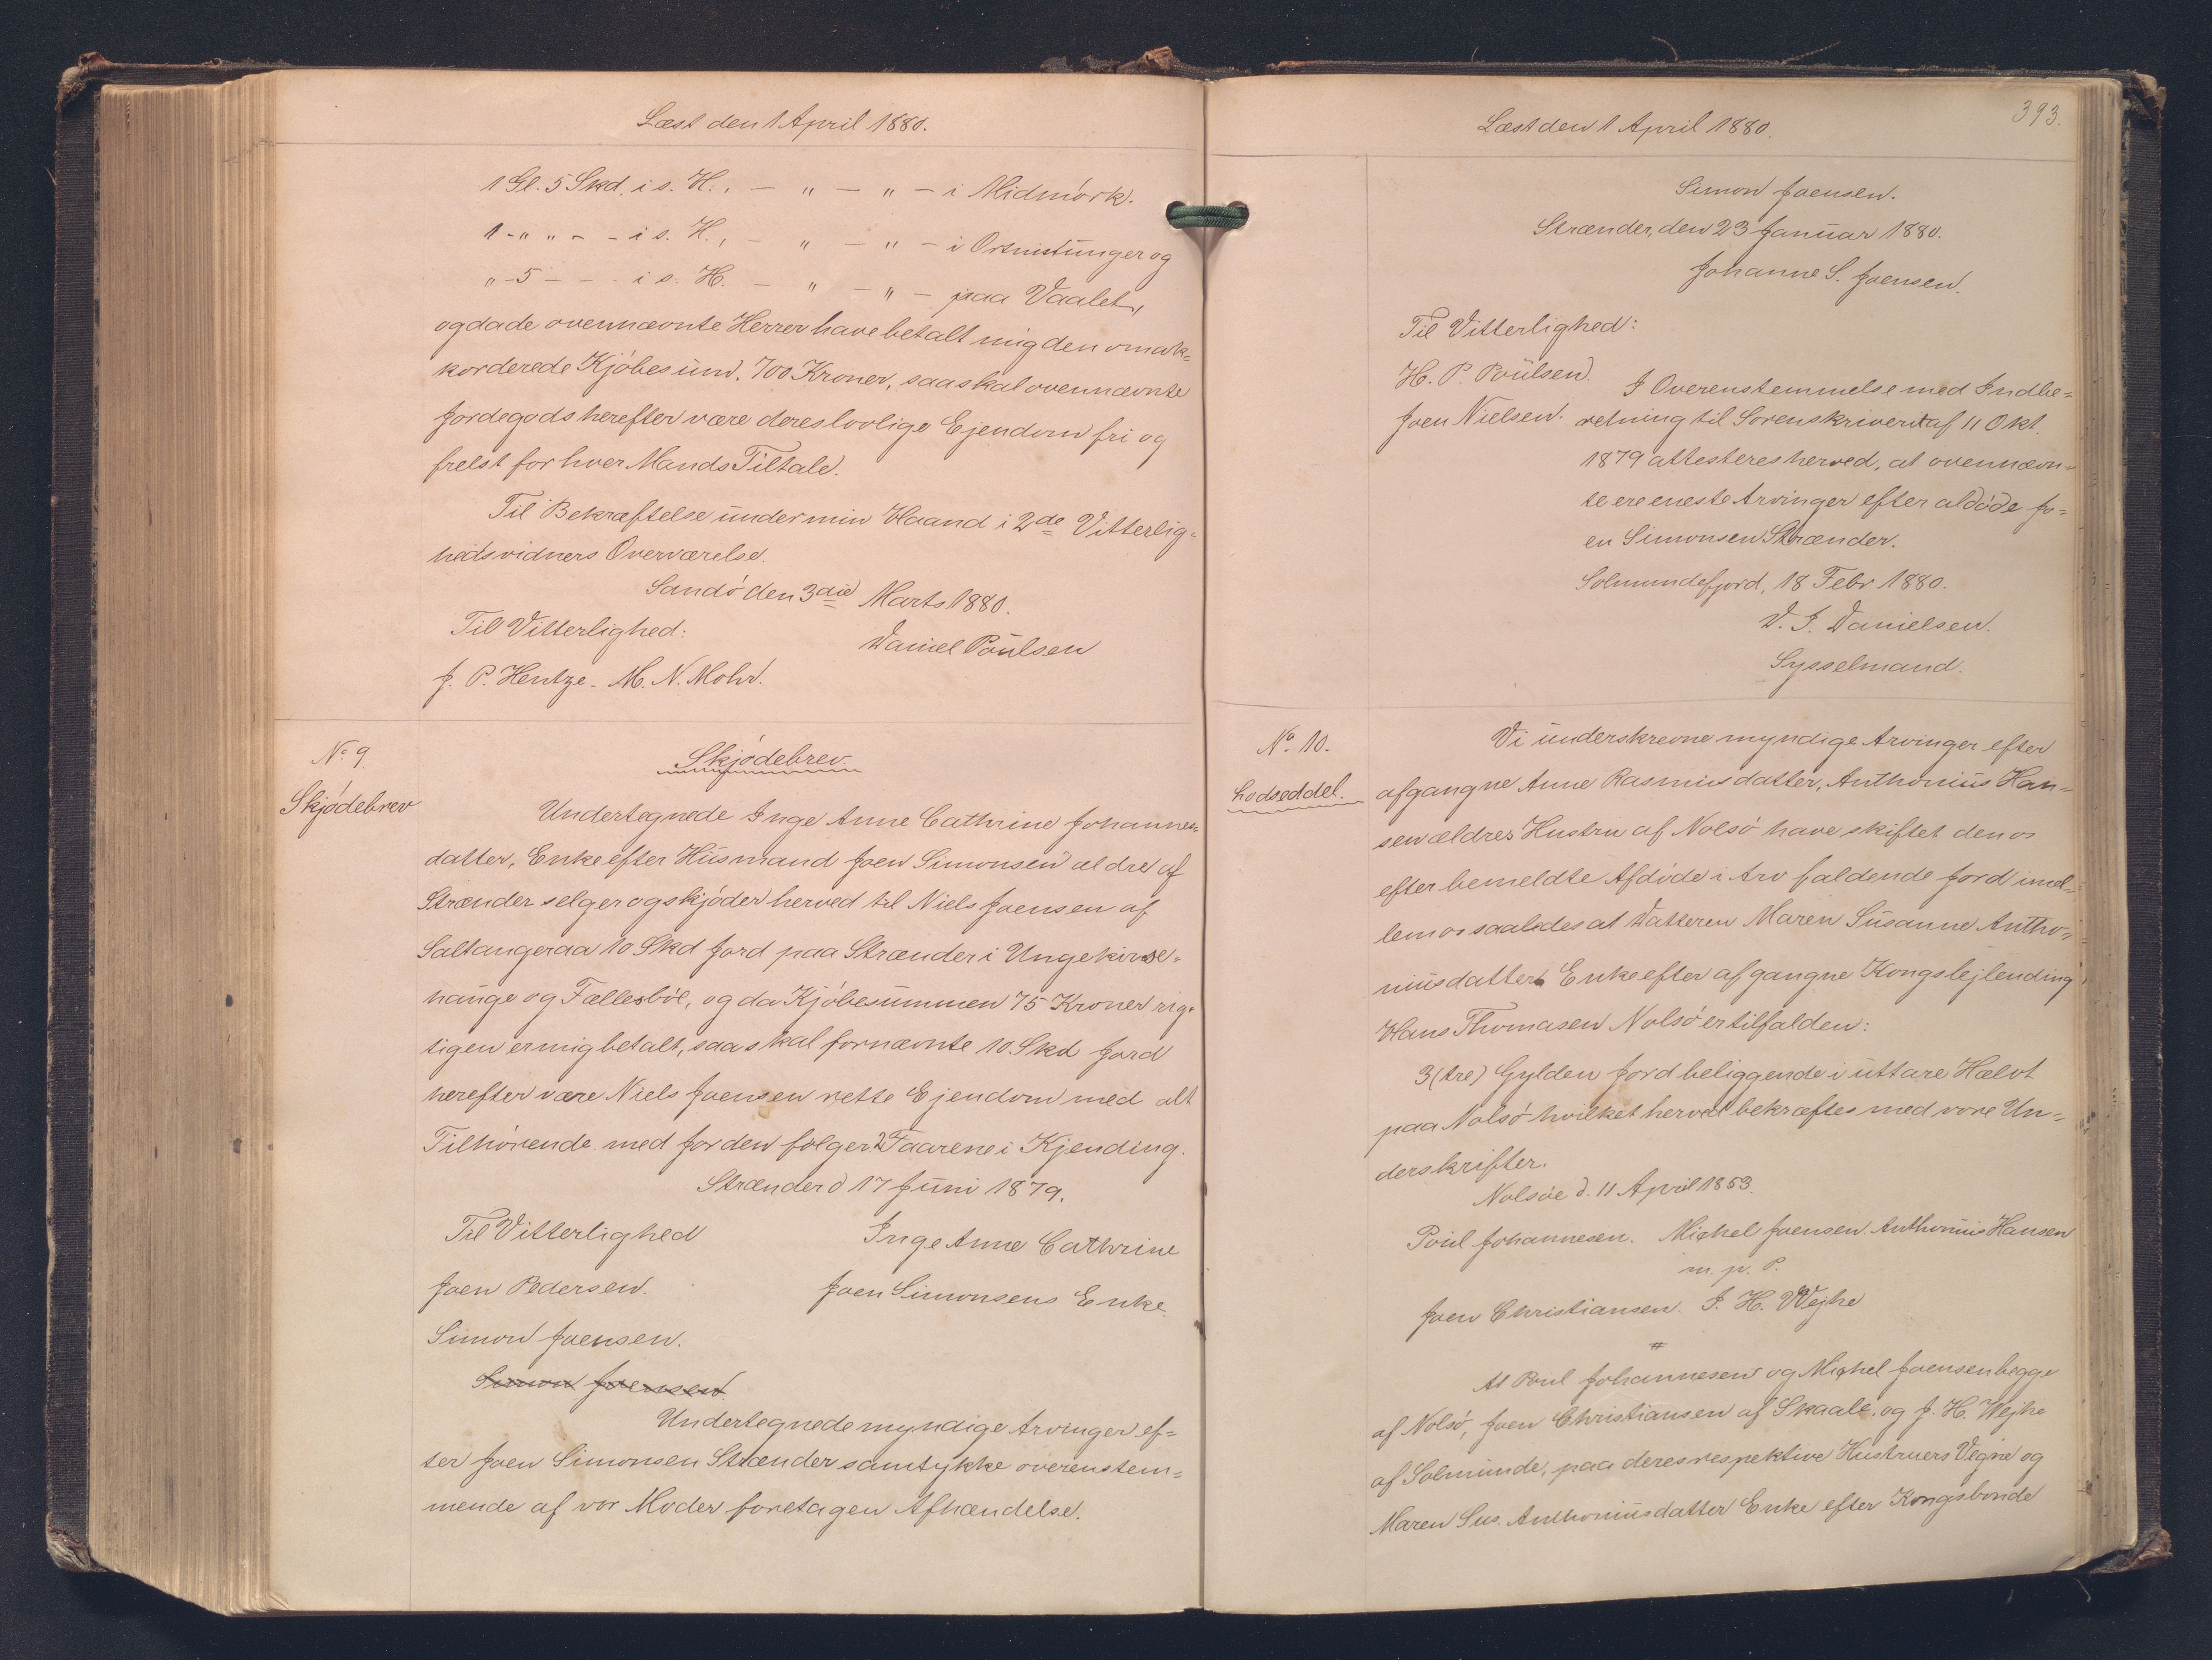 Læst den 1 April 1880.
1 Gl. 5 Skd. i s. H., — " — " — i Midmörk.
1 - " " - - i s. H., — " — " — i Ortnutunger og
" - 5 - - - i s. H. — " — " — paa Vaalet,
og da de ovennævnte Herrer have betalt mig den omak=
korderede Kjöbesum. 700 Kroner, saa skal ovennævnte
Jordegods herefter være deres lovlige Ejendom fri og
frelst for hver Mands Tiltale.
Til Bekræftelse under min Haand i 2de Vitterlig=
hedsvidners Overværelse.
Sandö den 3die Marts 1880.
Til Vitterlighed:
Daniel Poulsen
J. P. Hentze. M. N. Mohr.
No 9.
Skjödebrev
Skjödebrev.
Undertegnede Inge Anne Cathrine Johannes=
datter, Enke efter Husmand Joen Simonsen ældre af
Strænder selger og skjöder herved til Niels Joensen af
Saltangeraa 10 Skd Jord paa Strænder i Ungekirse=
hauge og Fællesböl, og da Kjöbesummen 75 Kroner rig=
tigen er mig betalt, saa skal fornævnte 10. Skd Jord
herefter være Niels Joensen rette Ejendom med alt
Tilhörende med Jorden folger 2 Faarene i Kjending.
Strænder d 17 Juni 1879.
Til Vitterlighed
Inge Anne Cathrine
Joen Pedersen.
Joen Simonsens Enke.
Simon Joensen.
Simon Joensen
Undertegnede myndige Arvinger ef=
ter Joen Simonsen Strænder samtykke overenstem=
mende af vor Moder foretagen Afhændelse.
393.
Læst den 1 April 1880.
Simon Joensen.
Strænder, den 23 Januar 1880.
Johanne S. Joensen.
Til Vitterlighed:
H. P. Poulsen.
Joen Nielsen.
I Overenstemmelse med Indbe=
retning til Sorenskriveriet af 11 Okt.
1879 attesteres herved, at ovennævn=
te ere eneste Arvinger efter afdöde Jo=
en Simonsen Strænder.
Solmundefjord, 18 Febr 1880.
D. J. Danielsen.
Sysselmand.
No. 10.
Lodseddel.
Vi underskrevne myndige Arvinger efter
afgangne Anne Rasmusdatter, Anthonius Han=
sen ældres Hustru af Nolsö have skiftet den os
efter bemeldte Afdöde i Arv faldende Jord imel=
lem os saaledes at Datteren Maren Susanne Antho=
niusdatter, Enke efter afgangne Kongslejlending
Hans Thomasen Nolsö er tilfalden:
3 (tre) Gylden Jord beliggende i uttare Hælvt
paa Nolsö hvilket herved bekræftes med vore Un=
derskrifter.
Nolsöe d. 11 April 1853.
Poul Johannesen. Michel Joensen. Anthonius Hansen
m. p. P.
Joen Christiansen. J. H. Wejhe
#
At Poul Johannesen og Michel Joensen begge
af Nolsö, Joen Christiansen af Skaale, og J. H. Wejhe
af Solmunde, paa deres respektive Hustruers Vegne og
Maren Sus. Anthoniusdatter Enke efter Kongsbonde